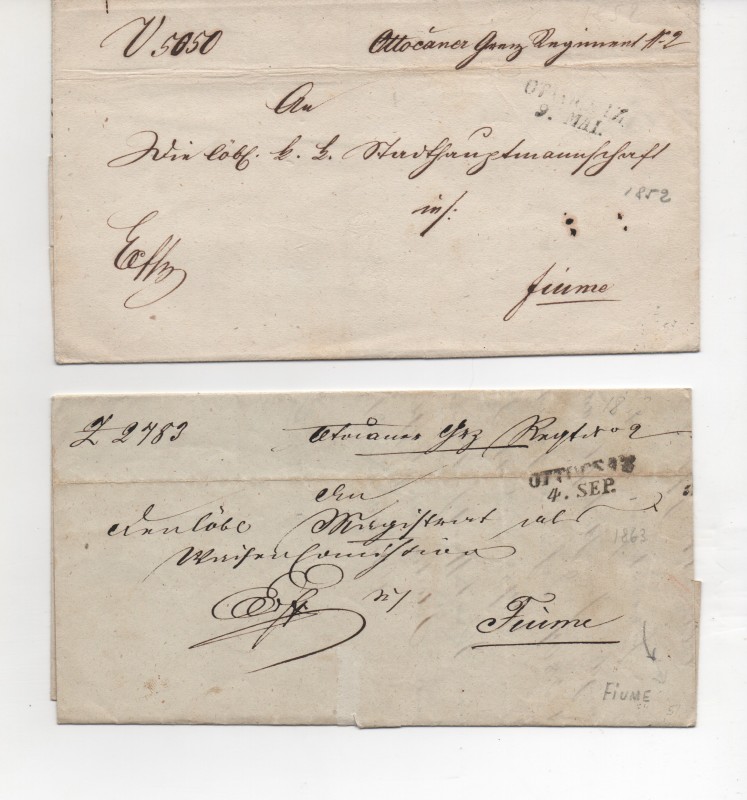 V 5050 Ottočaner Grenz Regiment N 2
OTTOCSATZ
9. MAI.
An
Die löbl. k. k. Stadthauptmannschaft
1852
in/:
Fiume
Z 2783 Otočaner Grz Regt No 2
OTTOCSATZ
4. SEP.
An
den löbl Magistrat als
1863
Waisen Comission
in/
Fiume
FIUME